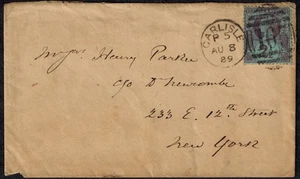 CARLISLE
P 5
AU 8
89
Henry Parker
c/o D Newcombe
233 E. 12th Street
New York